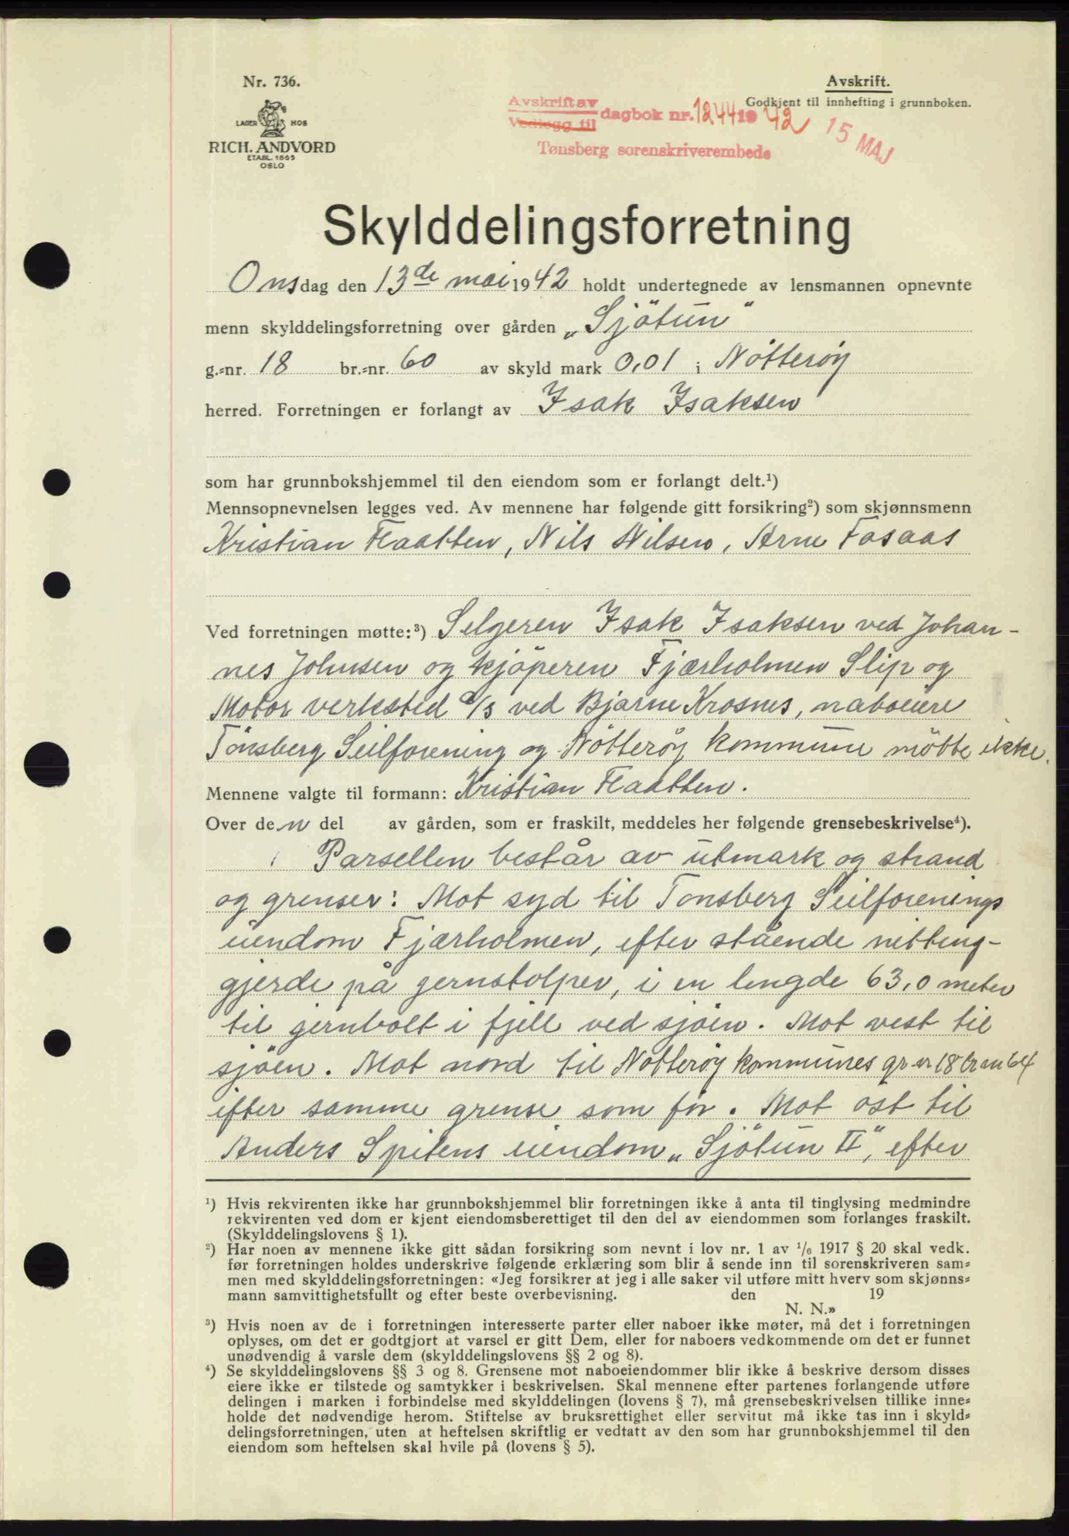 Nr. 736.
LAGER HOS
RICH. ANDVORD
ETABL. 1865
OSLO
Avskrift.
Godkjent til innhefting i grunnboken.
Avskrift av
Vedlegg til
dagbok nr. 1244 1942
15 MAJ
Tønsberg sorenskriverembede
Skylddelingsforretning
Onsdag den 13de mai 1942 holdt undertegnede av lensmannen opnevnte
menn skylddelingsforretning over gården „Sjötun"
g.-nr. 18 br.-nr. 60 av skyld mark 0,01 i Nötterøy
herred. Forretningen er forlangt av Isak Isaksen
som har grunnbokshjemmel til den eiendom som er forlangt delt.¹)
Mennsopnevnelsen legges ved. Av mennene har følgende gitt forsikring²) som skjønnsmenn
Kristian Flaatten, Nils Nilsen, Arne Fosaas
Ved forretningen møtte:³) Selgeren Isak Isaksen ved Johan-
nes Johnsen og kjöperen Fjærholmen Slip og
Motor verksted A/S ved Bjarne Krosnes, naboeiere
Tönsberg Seilforening og Nötterøy kommune mötte ikke.
Mennene valgte til formann: Kristian Flaatten.
Over den del av gården, som er fraskilt, meddeles her følgende grensebeskrivelse⁴).
Parsellen består av utmark og strand
og grenser: Mot syd til Tönsberg Seilforenings
eiendom Fjærholmen, efter stående netting-
gjerde på jernstolper, i en lengde 63,0 meter
til jernbolt i fjell ved sjöen. Mot vest til
sjöen. Mot nord til Nötterøy kommunes gr. nr 18 br. nr 64
efter samme grense som för. Mot öst til
Anders Spitens eiendom „Sjötun II", efter
¹) Hvis rekvirenten ikke har grunnbokshjemmel blir forretningen ikke å anta til tinglysing medmindre
rekvirenten ved dom er kjent eiendomsberettiget til den del av eiendommen som forlanges fraskilt.
(Skylddelingslovens § 1).
²) Har noen av mennene ikke gitt sådan forsikring som nevnt i lov nr. 1 av 1/6 1917 § 20 skal vedk.
før forretningen holdes underskrive følgende erklæring som blir å sende inn til sorenskriveren sam-
men med skylddelingsforretningen: «Jeg forsikrer at jeg i alle saker vil utføre mitt hverv som skjønns-
mann samvittighetsfullt og efter beste overbevisning. den 19
N. N.»
³) Hvis noen av de i forretningen interesserte parter eller naboer ikke møter, må det i forretningen
oplyses, om det er godtgjort at varsel er gitt Dem, eller for naboers vedkommende om det er funnet
unødvendig å varsle dem (skylddelingslovens §§ 2 og 8).
⁴) Se skylddelingslovens §§ 3 og 8. Grensene mot naboeiendommer blir ikke å beskrive dersom disses
eiere ikke er tilstede og samtykker i beskrivelsen. Skal mennene efter partenes forlangende utføre
delingen i marken i forbindelse med skylddelingen (lovens § 7), må grensebeskrivelsen tillike inne-
holde det nødvendige herom. Stiftelse av bruksrettighet eller servitut må ikke tas inn i skyld-
delingsforretningen, uten at heftelsen skriftlig er vedtatt av den som har grunnbokshjemmel til den
eiendom som heftelsen skal hvile på (lovens § 5).